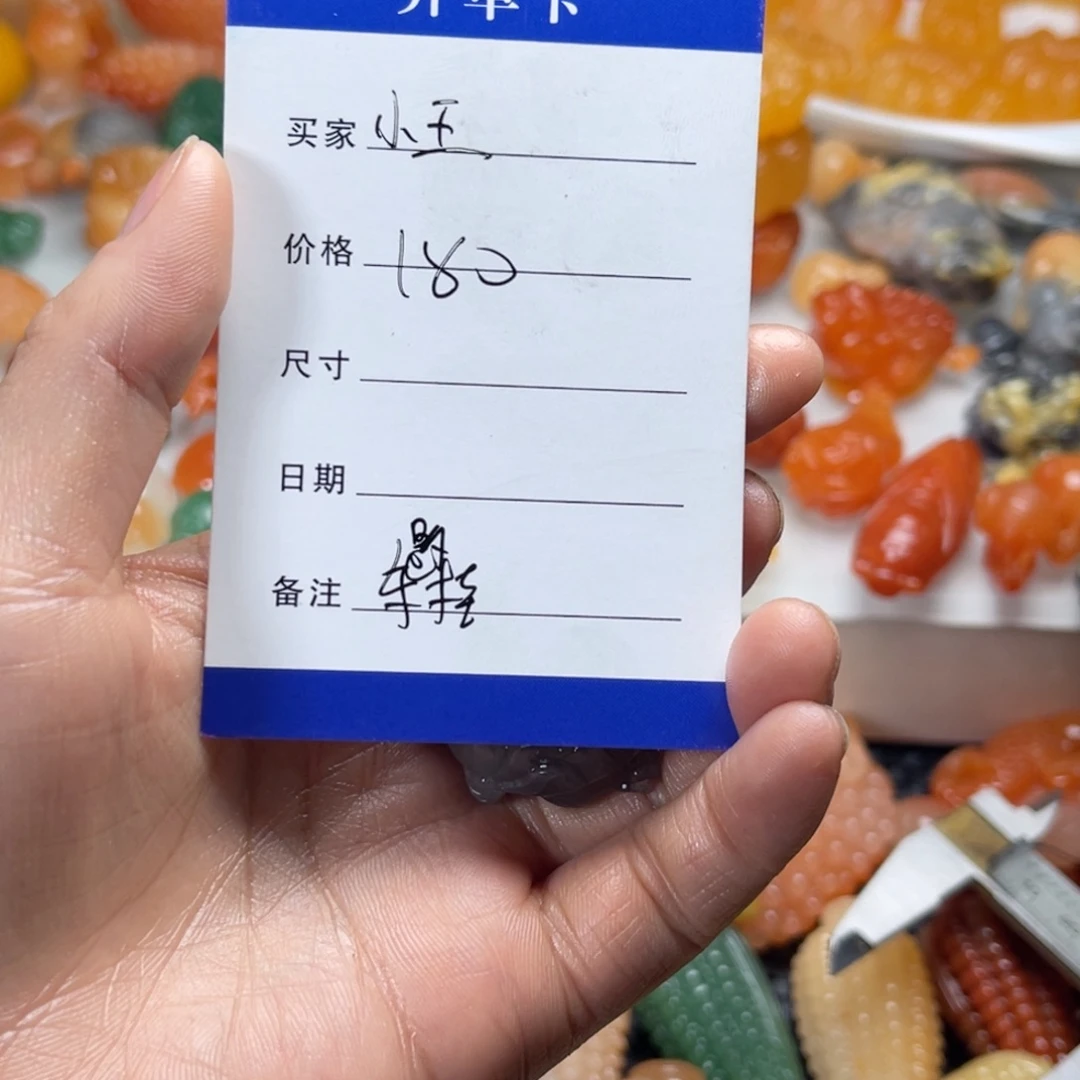 开单卡
买家 小王
价格 180
尺寸
日期
备注